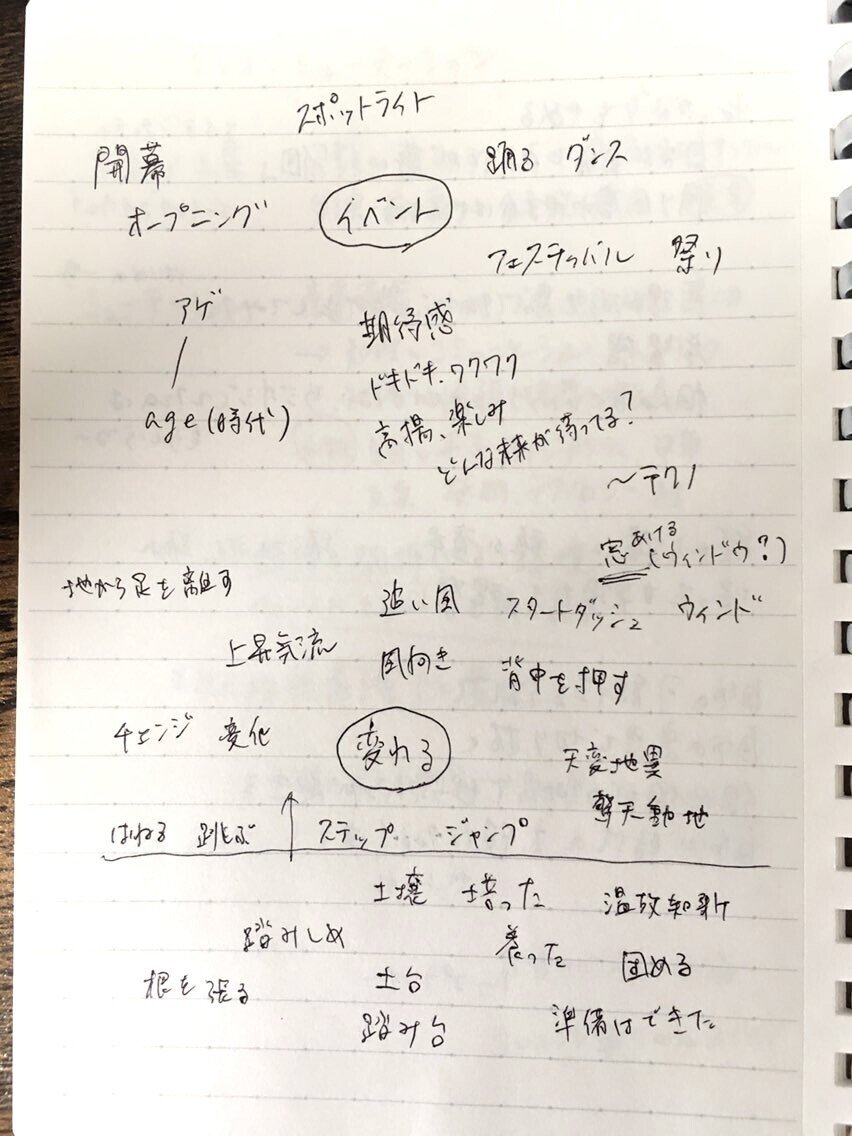 スポットライト
開幕
踊る ダンス
オープニング
イベント
フェスティバル 祭り
アゲ
期待感
ドキドキ、ワクワク
age(時代)
高揚、楽しみ
どんな未来が待ってる?
〜テクノ
窓あける(ウィンドウ?)
地から足を離す
追い風 スタートダッシュ ウィンド
上昇気流
風向き 背中を押す
チェンジ 変化
変れる
天変地異
驚天動地
はねる 跳ぶ
ステップ ジャンプ
土壌 培った 温故知新
踏みしめ
養った
固める
根を張る
土台
踏み台
準備はできた